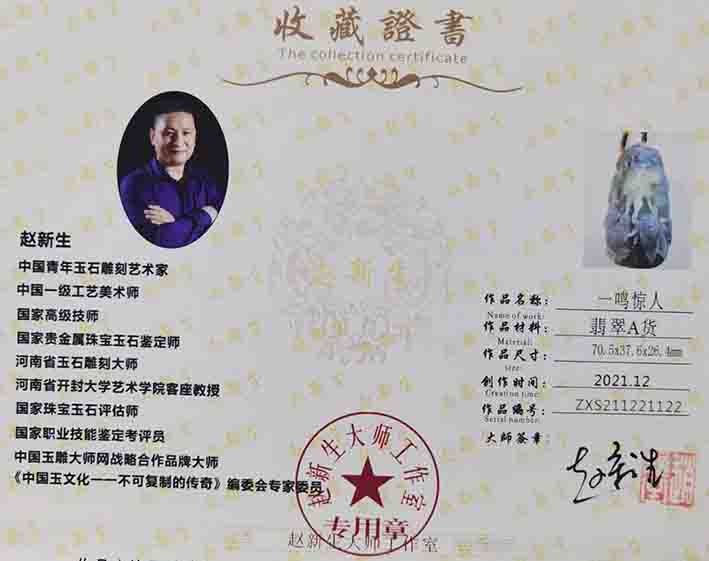 收藏證書
The collection certificate
赵新生
中国青年玉石雕刻艺术家
中国一级工艺美术师
国家高级技师
国家贵金属珠宝玉石鉴定师
河南省玉石雕刻大师
河南省开封大学艺术学院客座教授
国家珠宝玉石评估师
国家职业技能鉴定考评员
中国玉雕大师网战略合作品牌大师
《中国玉文化一一不可复制的传奇》编委会专家委员
赵新生
作品名称: 一鸣惊人
Name of work:
作品材料: 翡翠A货
Material:
作品尺寸: 70.5x37.6x26.4mm
size:
创作时间: 2021.12
Creation time:
作品编号: ZXS211221122
Serial number:
大师签章:
赵新生
赵新生大师工作室
专用章
赵新生大师工作室